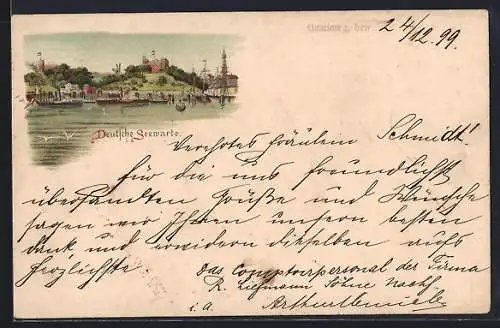 Hamburg, den 24/12.99.
Deutsche Seewarte.
Verehrtes Fräulein Schmidt!
Für die uns freundlichst
übersandten Grüße und Wünsche
sagen wir Ihnen unsern besten
Dank und erwidern dieselben aufs
herzlichste
das Comptoirpersonal der Firma
R. Liefmann Söhne Nachf.
i.a.